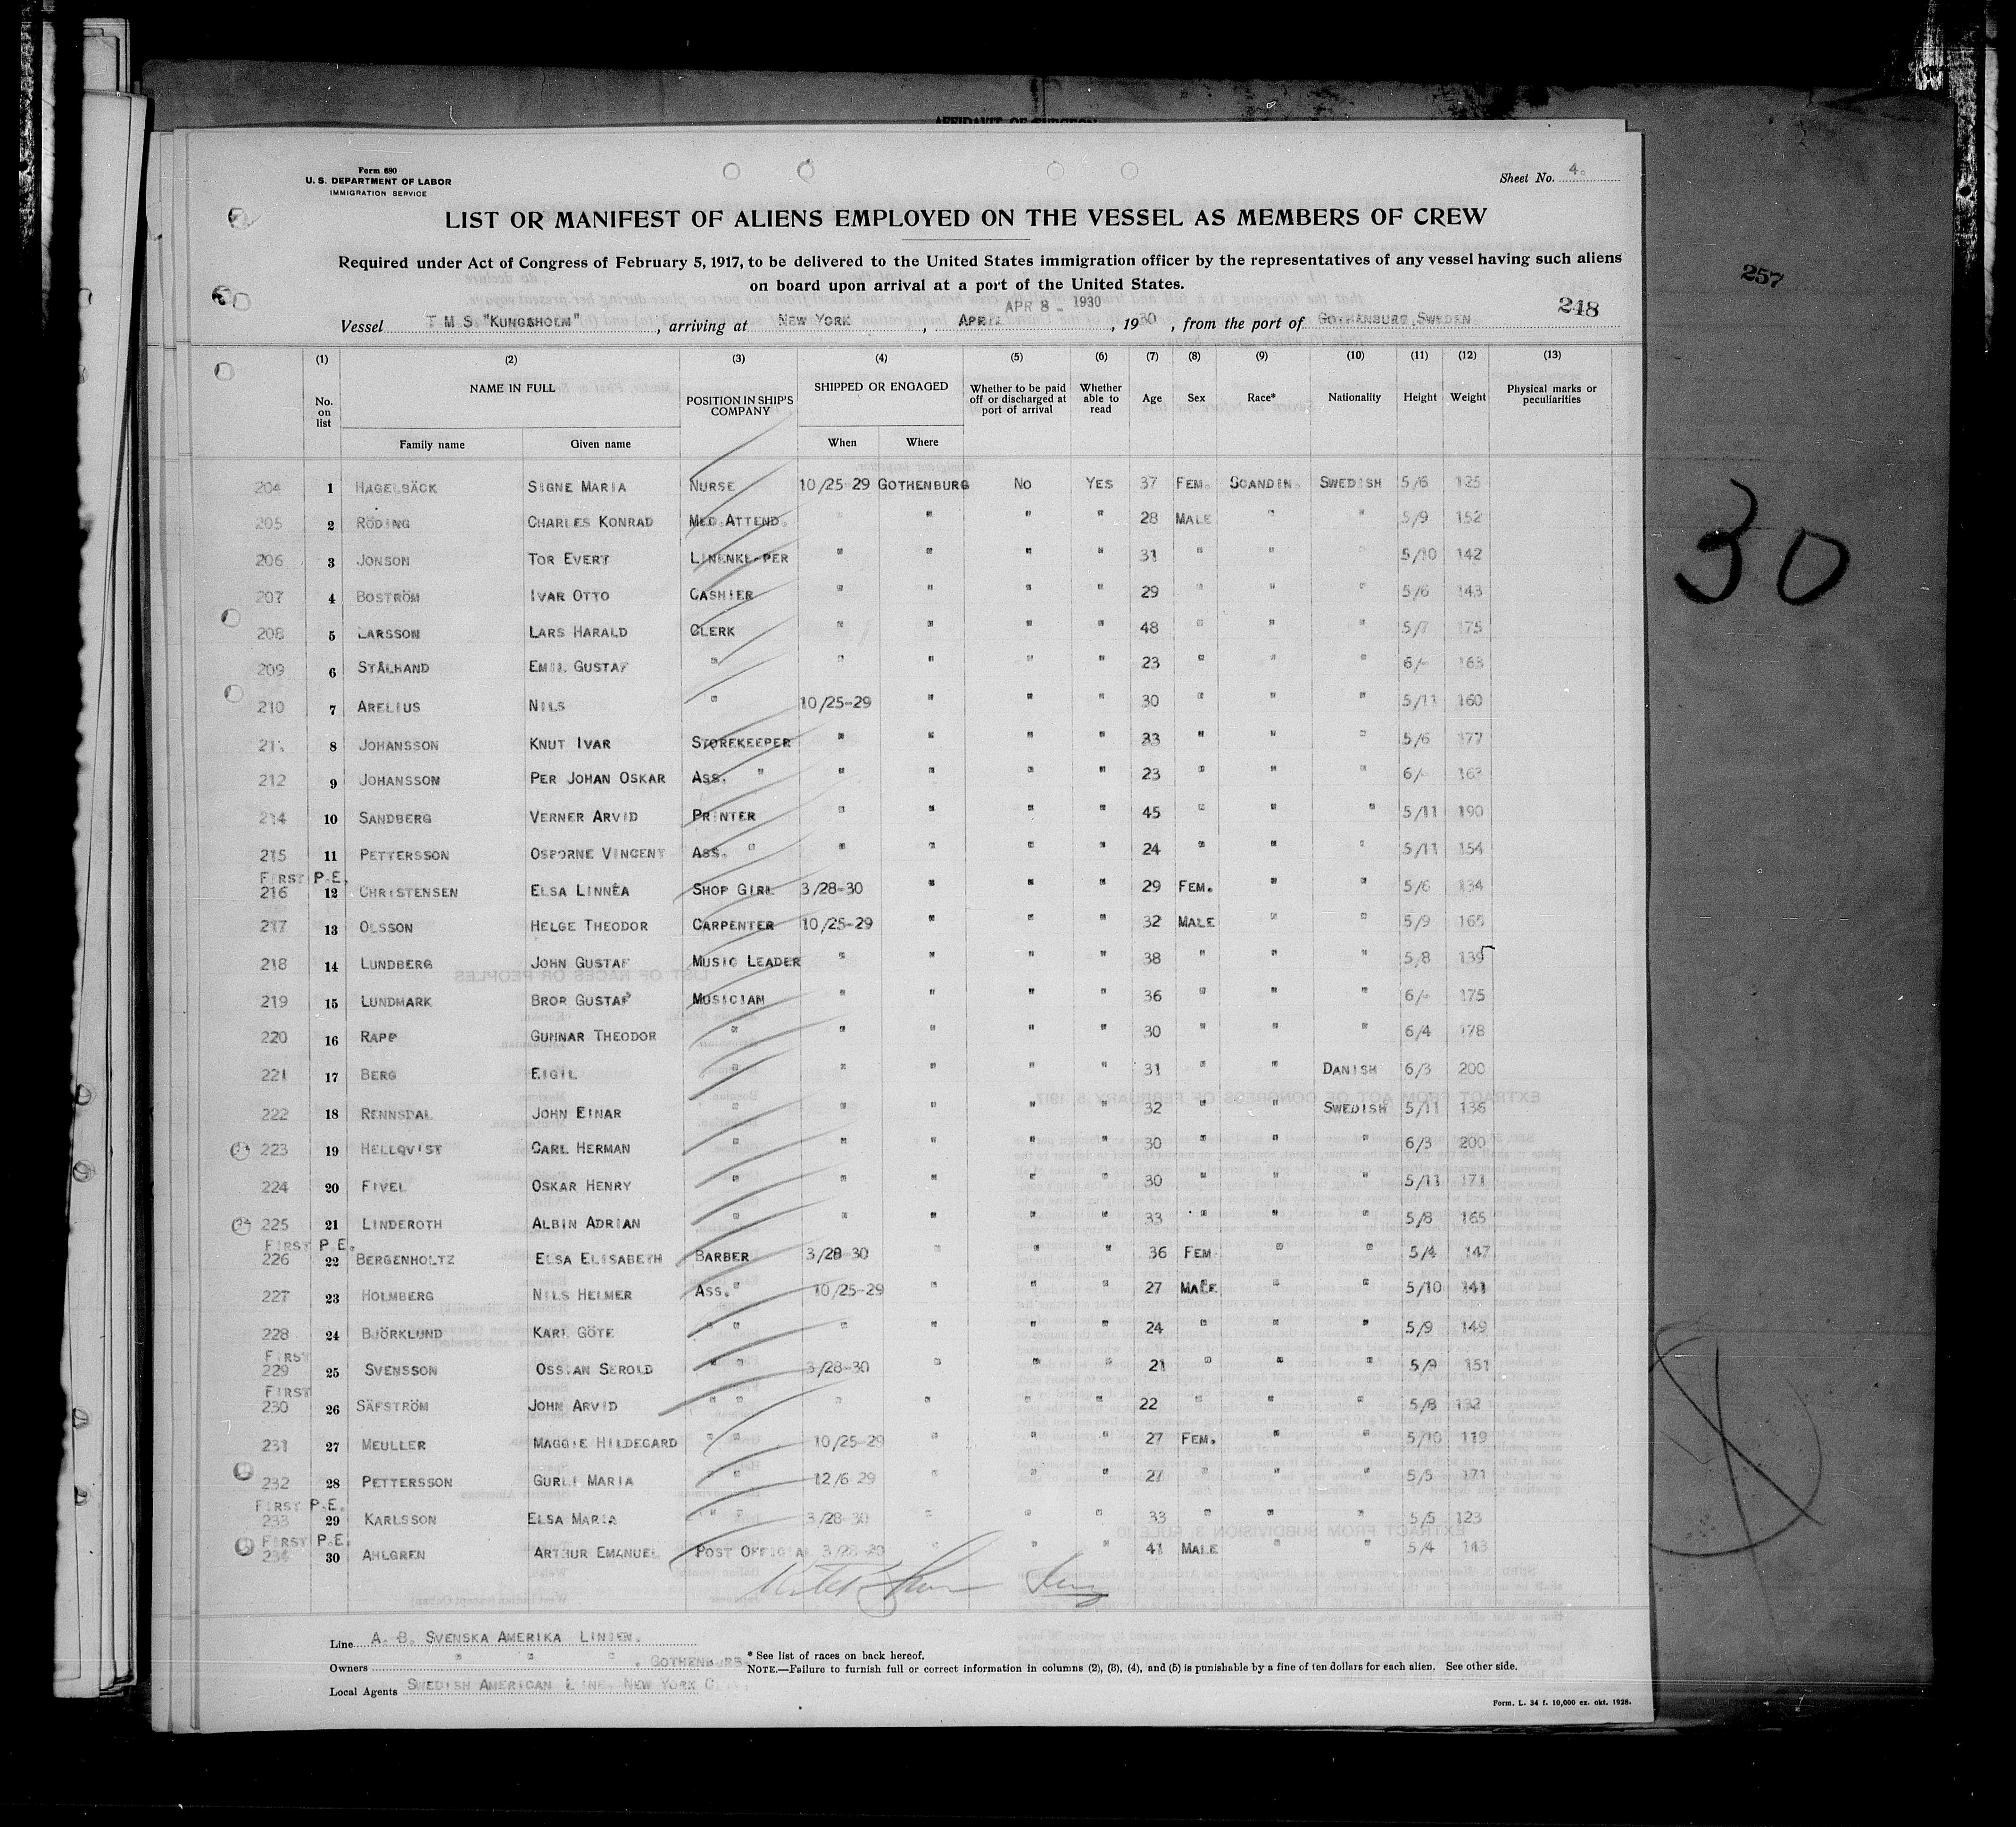 AFFIDAVIT OF SURGEON
Form 680
U. S. DEPARTMENT OF LABOR
IMMIGRATION SERVICE
Sheet No. 4.
LIST OR MANIFEST OF ALIENS EMPLOYED ON THE VESSEL AS MEMBERS OF CREW
Required under Act of Congress of February 5, 1917, to be delivered to the United States immigration officer by the representatives of any vessel having such aliens
on board upon arrival at a port of the United States.
257
APR 8 - 1930
248
Vessel T M S "KUNGSHOLM", arriving at NEW YORK, APRIL, 1930, from the port of GOTHENBURG, SWEDEN
(1) (2) (3) (4) (5) (6) (7) (8) (9) (10) (11) (12) (13)
No. on list NAME IN FULL POSITION IN SHIP'S COMPANY SHIPPED OR ENGAGED Whether to be paid off or discharged at port of arrival Whether able to read Age Sex Race* Nationality Height Weight Physical marks or peculiarities
Family name Given name When Where
204 1 HAGELBÄCK SIGNE MARIA NURSE 10/25-29 GOTHENBURG NO YES 37 FEM. SCANDIN. SWEDISH 5/6 125
205 2 RÖDING CHARLES KONRAD MED.ATTEND. " " " " 28 MALE " " 5/9 152
206 3 JONSON TOR EVERT LINENKEEPER " " " " 31 " " " 5/10 142
207 4 BOSTRÖM IVAR OTTO CASHIER " " " " 29 " " " 5/6 143
208 5 LARSSON LARS HARALD CLERK " " " " 48 " " " 5/7 175
209 6 STÅLHAND EMIL GUSTAF " " " " " 23 " " " 6/- 163
210 7 ARELIUS NILS " 10/25-29 " " " 30 " " " 5/11 160
211 8 JOHANSSON KNUT IVAR STOREKEEPER " " " " 33 " " " 5/6 177
212 9 JOHANSSON PER JOHAN OSKAR ASS. " " " " " 23 " " " 6/- 163
214 10 SANDBERG VERNER ARVID PRINTER " " " " 45 " " " 5/11 190
215 11 PETTERSSON OSBORNE VINCENT ASS. " " " " " 24 " " " 5/11 154
FIRST P.E.
216 12 CHRISTENSEN ELSA LINNÉA SHOP GIRL 3/28-30 " " " 29 FEM. " " 5/6 134
217 13 OLSSON HELGE THEODOR CARPENTER 10/25-29 " " " 32 MALE " " 5/9 165
218 14 LUNDBERG JOHN GUSTAF MUSIC LEADER " " " " 38 " " " 5/8 135
219 15 LUNDMARK BROR GUSTAF MUSICIAN " " " " 36 " " " 6/- 175
220 16 RAPP GUNNAR THEODOR " " " " " 30 " " " 6/4 178
221 17 BERG EIGIL " " " " " 31 " " DANISH 6/3 200
222 18 RENNSDAL JOHN EINAR " " " " " 32 " " SWEDISH 5/11 136
223 19 HELLQVIST CARL HERMAN " " " " " 30 " " " 6/3 200
224 20 FIVEL OSKAR HENRY " " " " " 30 " " " 5/11 171
225 21 LINDEROTH ALBIN ADRIAN " " " " " 33 " " " 5/8 165
FIRST P.E.
226 22 BERGENHOLTZ ELSA ELISABETH BARBER 3/28-30 " " " 36 FEM " " 5/4 147
227 23 HOLMBERG NILS HELMER ASS. " 10/25-29 " " " 27 MALE " " 5/10 141
228 24 BJÖRKLUND KARL GÖTE " " " " " " 24 " " " 5/9 149
FIRST
229 25 SVENSSON OSSIAN SEROLD " " 3/28-30 " " " 21 " " " 5/9 151
FIRST
230 26 SÄFSTRÖM JOHN ARVID " " " " " " 22 " " " 5/8 132
231 27 MEULLER MAGGIE HILDEGARD " " 10/25-29 " " " 27 FEM. " " 5/10 119
232 28 PETTERSSON GURLI MARIA " " 12/6 29 " " " 27 " " " 5/5 171
FIRST P.E.
233 29 KARLSSON ELSA MARIA " " 3/28-30 " " " 33 " " " 5/5 123
FIRST P.E.
234 30 AHLGREN ARTHUR EMANUEL POST OFFICIAL 3/28-30 " " " 41 MALE " " 5/4 143
30
Line A. B. SVENSKA AMERIKA LINIEN.
Owners " " " , GOTHENBURG.
Local Agents SWEDISH AMERICAN LINE, NEW YORK CITY.
* See list of races on back hereof.
NOTE.—Failure to furnish full or correct information in columns (2), (3), (4), and (5) is punishable by a fine of ten dollars for each alien. See other side.
Form. L. 34 f. 10,000 ex. okt. 1928.